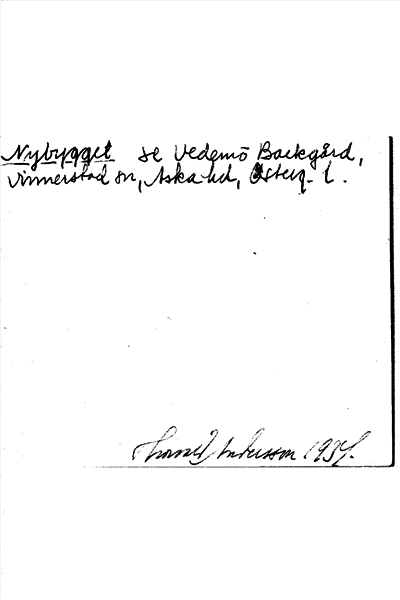 Nybygget se Vedemö Backgård,
Vinnerstad sn, Aska hd, Österg. l.
Thorvald Andersson 1934.